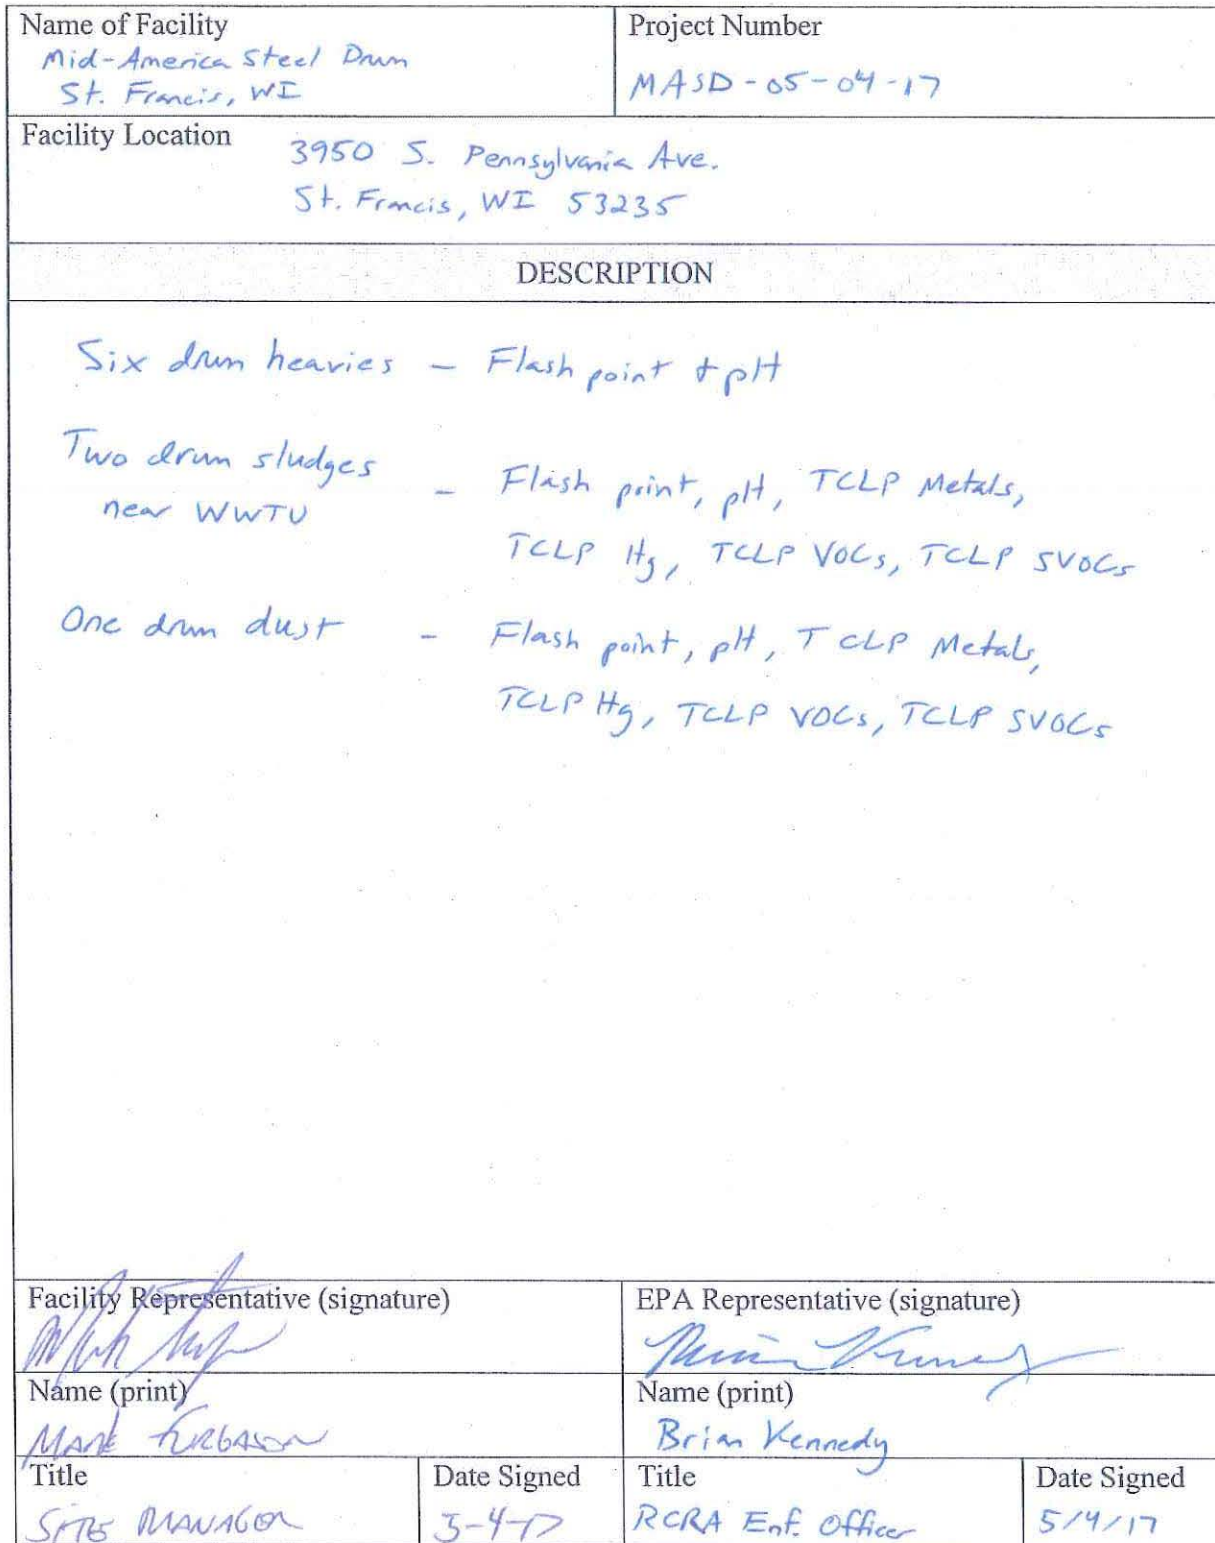 Name of Facility
Mid-America Steel Drum
St. Francis, WI
Project Number
MASD-05-04-17
Facility Location
3950 S. Pennsylvania Ave.
St. Francis, WI 53235
DESCRIPTION
Six drum heavies - Flash point + pH
Two drum sludges
near WWTU
- Flash point, pH, TCLP Metals,
TCLP Hg, TCLP VOCs, TCLP SVOCs
One drum dust - Flash point, pH, TCLP Metals,
TCLP Hg, TCLP VOCs, TCLP SVOCs
Facility Representative (signature)
EPA Representative (signature)
Name (print)
MARK FURGASON
Name (print)
Brian Kennedy
Title
SITE MANAGER
Date Signed
5-4-17
Title
RCRA Enf. Officer
Date Signed
5/4/17